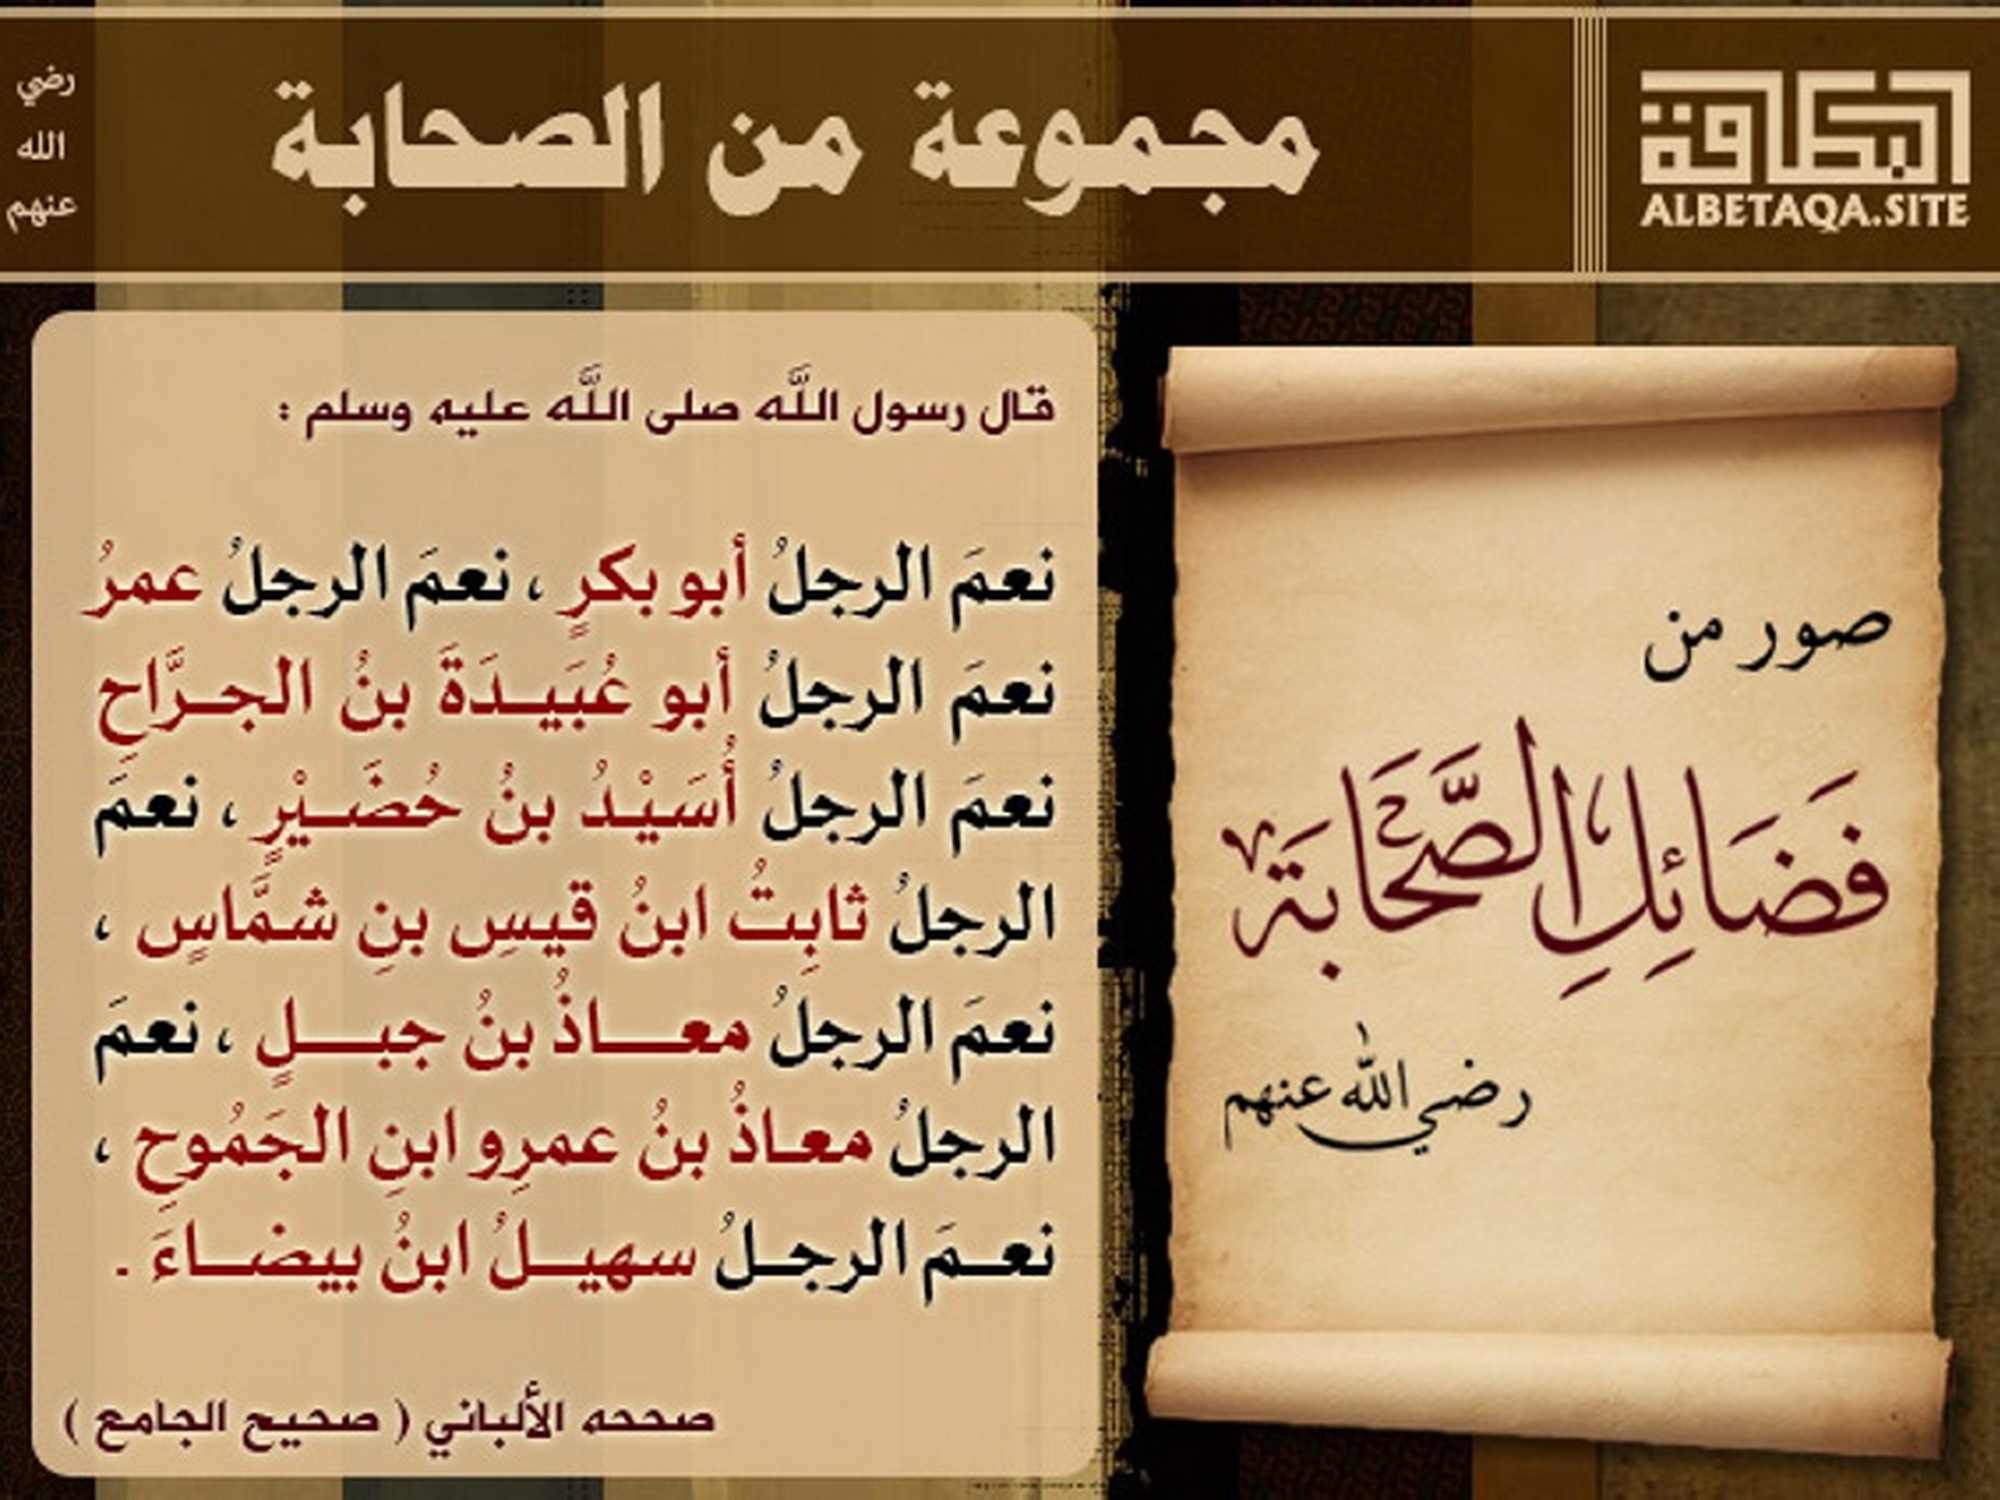 البطاقة
ALBETAQA.SITE
مجموعة من الصحابة
رضي
الله
عنهم
صور من
فَضَائِلِ الصَّحَابَة
رضي الله عنهم
قال رسول اللَّه صلى اللَّه عليه وسلم :
نعمَ الرجلُ أبو بكرٍ ، نعمَ الرجلُ عمرُ
نعمَ الرجلُ أبو عُبَيدَةَ بنُ الجرَّاحِ
نعمَ الرجلُ أُسَيْدُ بنُ حُضَيْرٍ ، نعمَ
الرجلُ ثابِتُ ابنُ قيسِ بنِ شمَّاسٍ ،
نعمَ الرجلُ معاذُ بنُ جبلٍ ، نعمَ
الرجلُ معاذُ بنُ عمرِو ابنِ الجَمُوحِ ،
نعمَ الرجلُ سهيلُ ابنُ بيضاءَ .
صححه الألباني ( صحيح الجامع )